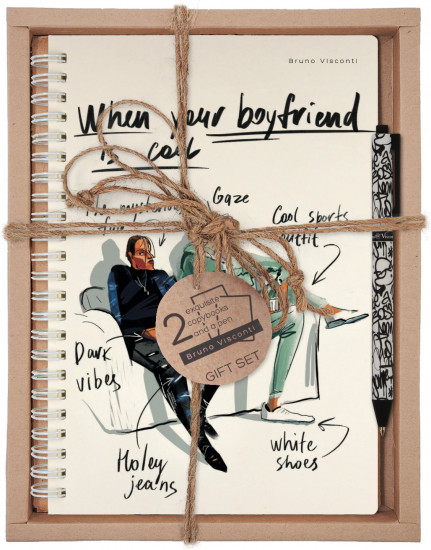 Bruno Visconti
When your boyfriend
is cool
Gaze
Cool sports
outfit
2 exquisite
copybooks
and a pen
Bruno Visconti
GIFT SET
Dark
vibes
Holey
jeans
white
shoes